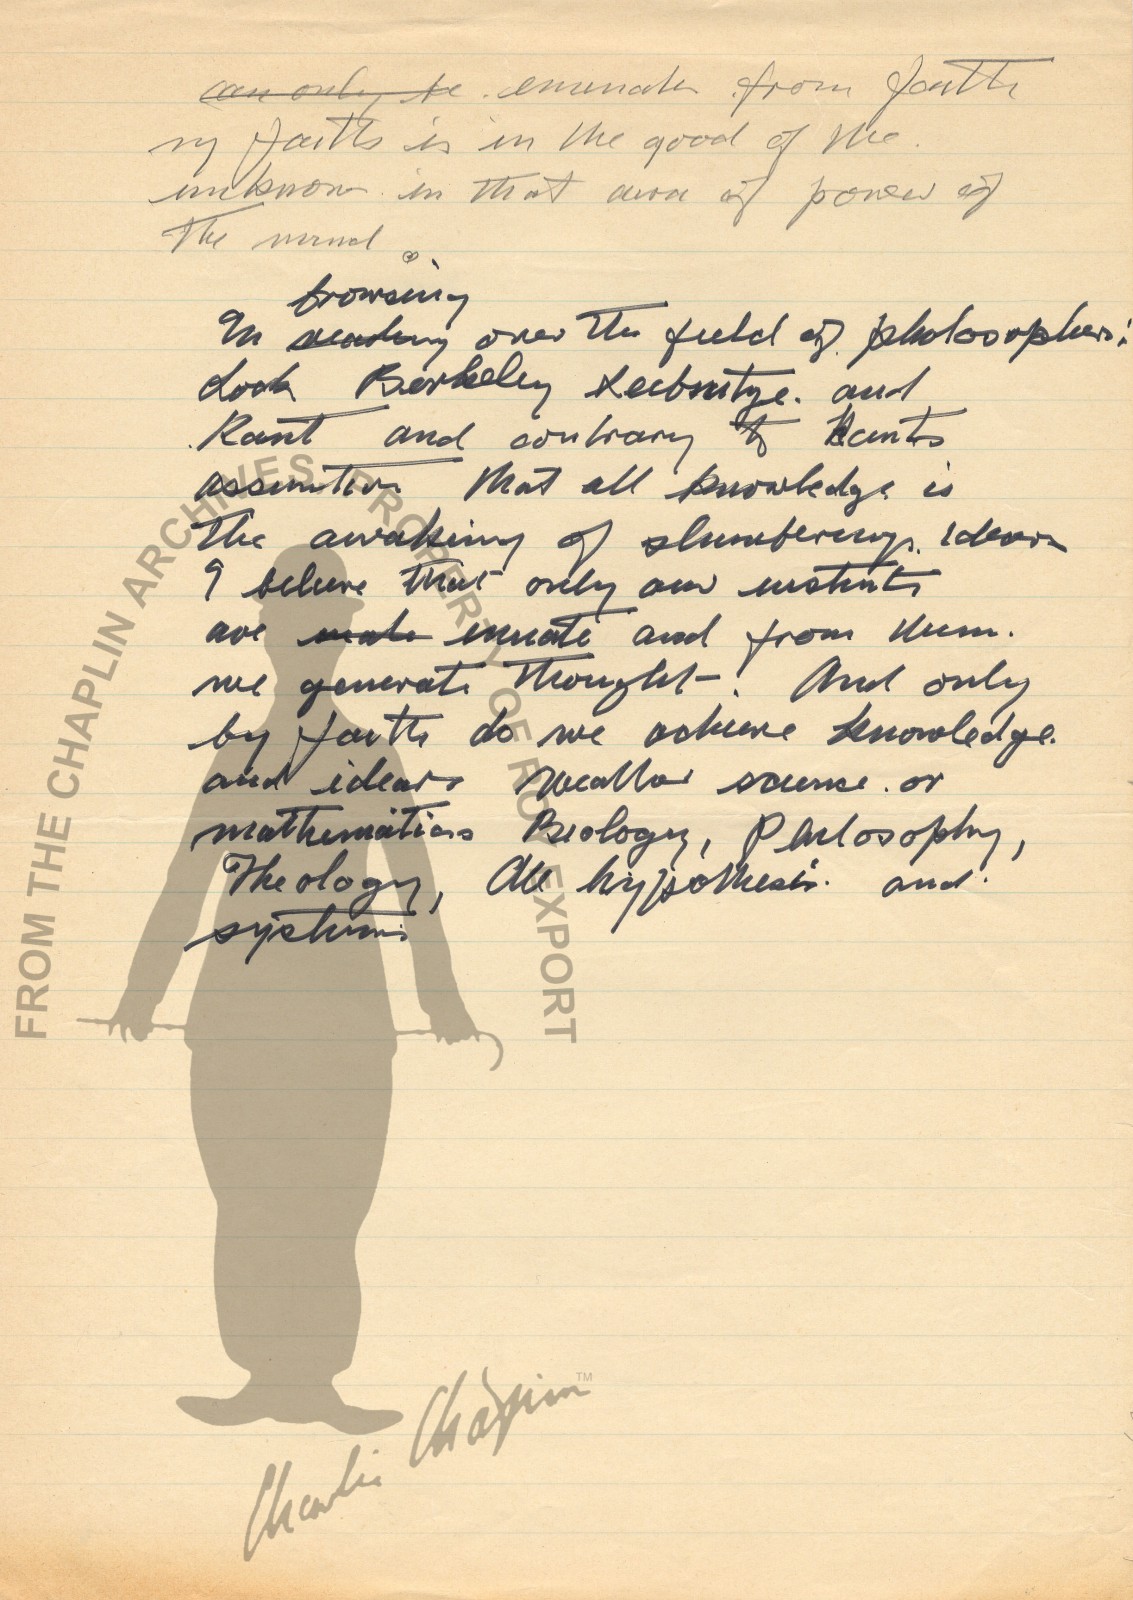 can only be emenate from faith
my faith is in the good of the
unknown in that area of power of
the mind
browsing
In reading over the field of pholosophers:
Look Berkeley Leebnitze. and
Kant and contrary to Kants
assumtion that all knowledge is
the awaking of slumbering idears
I believe that only our instints
are inate and from them.
we generate thought! And only
by faith do we achieve knowledge.
and idears science. or
mathematics Beology, Philosophy,
Theology, All hypothesis. and
systems
FROM THE CHAPLIN ARCHIVES. PROPERTY OF ROY EXPORT
Charlie Chaplin™